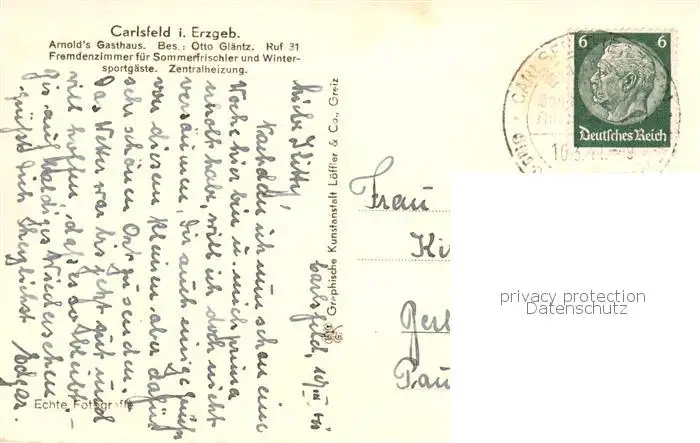 Carlsfeld i. Erzgeb.
Arnold's Gasthaus. Bes.: Otto Gläntz. Ruf 31
Fremdenzimmer für Sommerfrischler und Winter-
sportgäste. Zentralheizung.
Carlsfeld, 10.
Liebe Kitty!
Nachdem ich nun schon eine
Woche hier bin u. mich prima
erholt habe, will ich doch nicht
versäumen, Dir auch einige Grüße
von diesem kleinen aber dafür
sehr schönen Ort zu senden.
Das Wetter war bis jetzt gut und
will hoffen, daß es so bleibt.
Also auf baldiges Wiedersehen
grüßt Dich herzlichst Edgar.
Echte Fotografie
Graphische Kunstanstalt Löffler & Co., Greiz
6 6
Deutsches Reich
CARLSFELD
10.3.41
Frau
Ki
Ger
privacy protection
Datenschutz